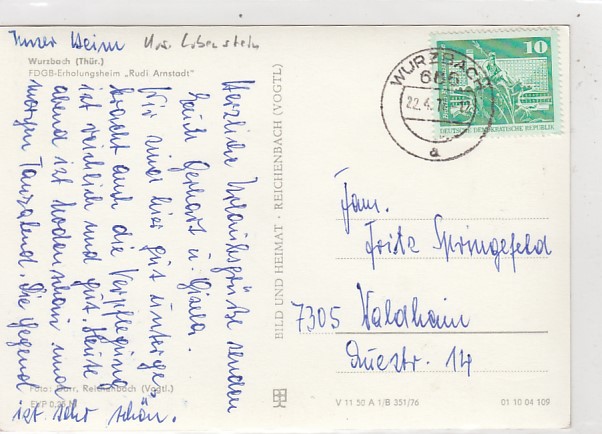 Unser Heim
Wurzbach (Thür.)
FDGB-Erholungsheim „Rudi Arnstadt"
Herzliche Urlaubsgrüße senden
Euch Gerhard u. Gisela.
Wir sind hier gut unterge-
bracht auch die Verpflegung
ist reichlich und gut. Heute
abend ist Modenschau und
morgen Tanzabend. Die Gegend
ist sehr schön.
Foto: Darr, Reichenbach (Vogtl.)
EVP 0,20 M
BILD UND HEIMAT · REICHENBACH (VOGTL)
WURZBACH
22.4.
a
10
DEUTSCHE DEMOKRATISCHE REPUBLIK
Fam.
Fritz Springefeld
7305 Waldheim
14
V 11 50 A 1/B 351/76
01 10 04 109